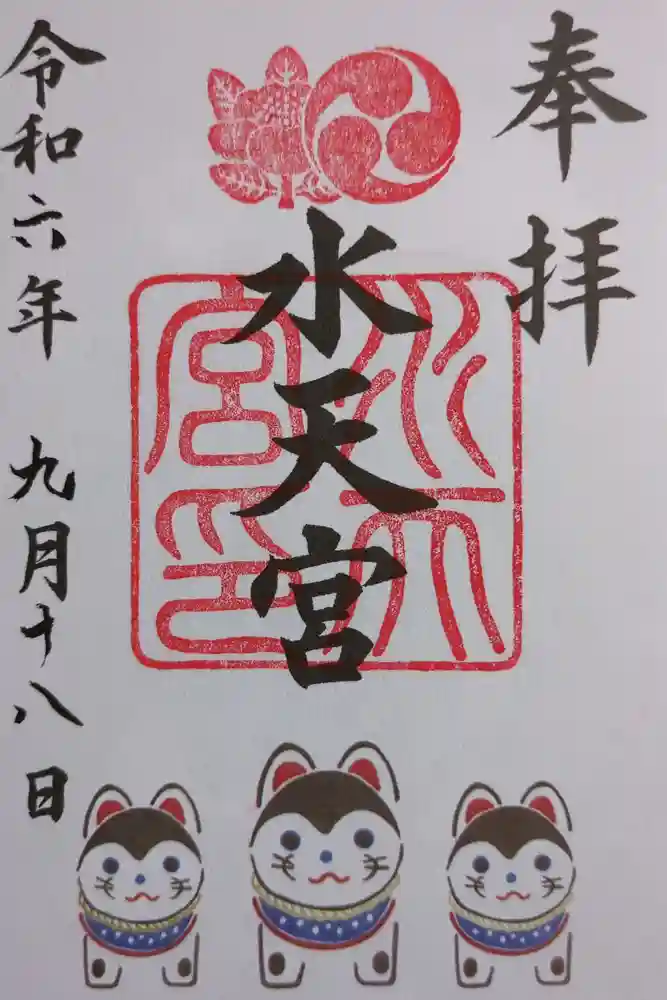 奉拝
水天宮
水天宮印
令和六年 九月十八日